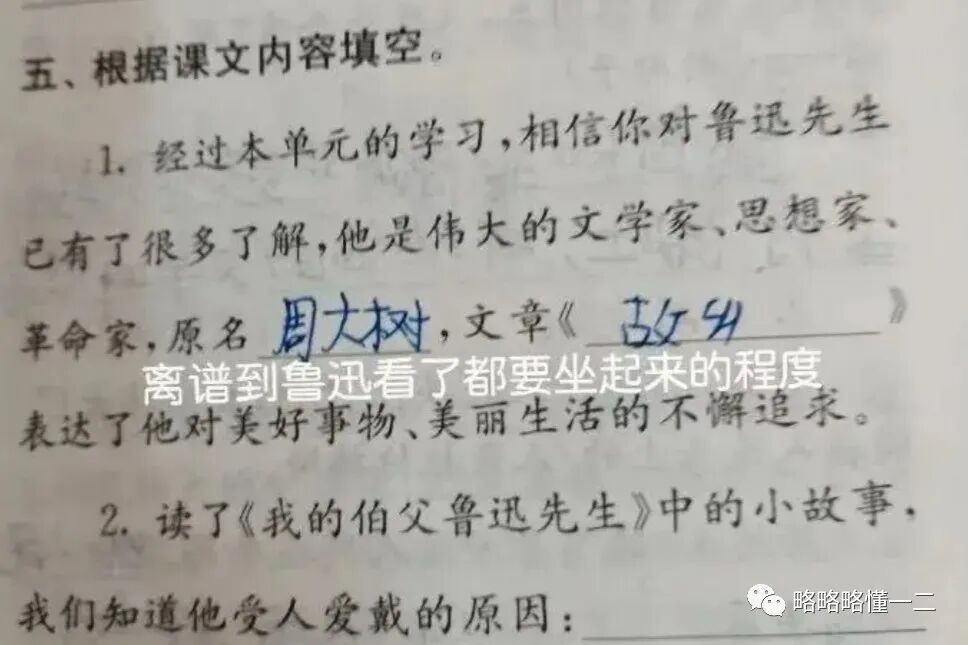 五、根据课文内容填空。
1. 经过本单元的学习,相信你对鲁迅先生
已有了很多了解,他是伟大的文学家、思想家、
革命家,原名 周大树,文章《 故乡 》
离谱到鲁迅看了都要坐起来的程度
表达了他对美好事物、美丽生活的不懈追求。
2. 读了《我的伯父鲁迅先生》中的小故事,
我们知道他受人爱戴的原因:
略略略懂一二